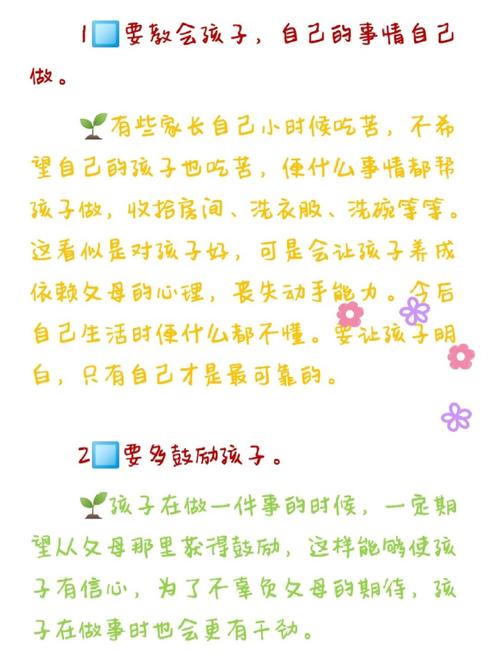 1要教会孩子，自己的事情自己
做。
有些家长自己小时候吃苦，不希
望自己的孩子也吃苦，便什么事情都帮
孩子做，收拾房间、洗衣服、洗碗等等。
这看似是对孩子好，可是会让孩子养成
依赖父母的心理，丧失动手能力。今后
自己生活时便什么都不懂。要让孩子明
白，只有自己才是最可靠的。
2要多鼓励孩子。
孩子在做一件事的时候，一定期
望从父母那里获得鼓励，这样能够使孩
子有信心，为了不辜负父母的期待，孩
子在做事时也会更有干劲。